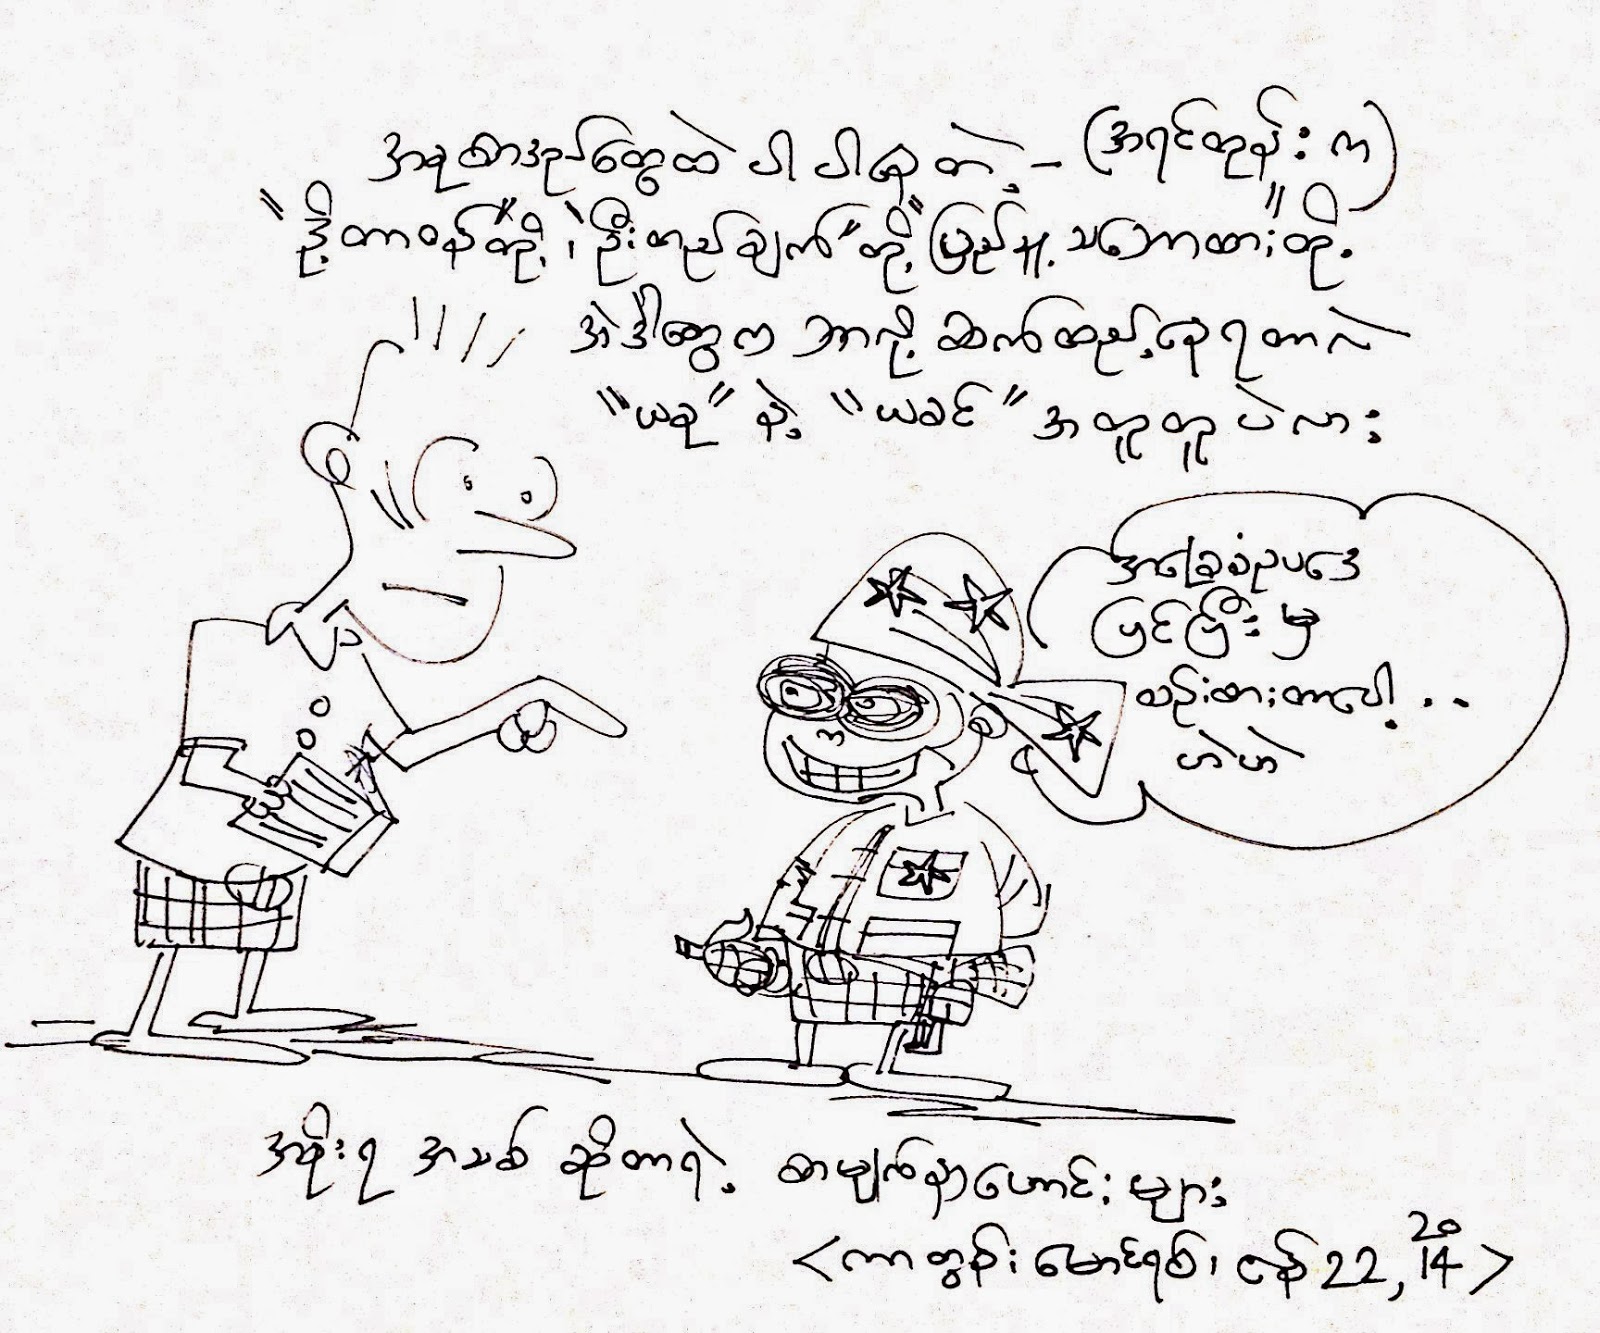 အစုစာအုပ်တွေထဲ ပါပါနေတဲ့ - (အရင်တုန်းက)
"ဒို့တာဝန်"တို့၊ "ဦးတည်ချက်"တို့ "ပြည်သူ့သဘောထား"တို့
အဲဒါတွေက ဘာလို့ ဆက်ထည့်နေရတာလဲ
"ယခု" နဲ့ "ယခင်" အတူတူပဲလား
အခြေခံဥပဒေ
ပြင်ပြီးမှ
စဉ်းစားတာပေါ့ . .
ဟဲဟဲ
အစိုးရ အသစ် ဆိုတာရဲ့ စာမျက်နှာဟောင်းများ
<ကာတွန်း မောင်ရစ်၊ ဇွန် 22, 2014>